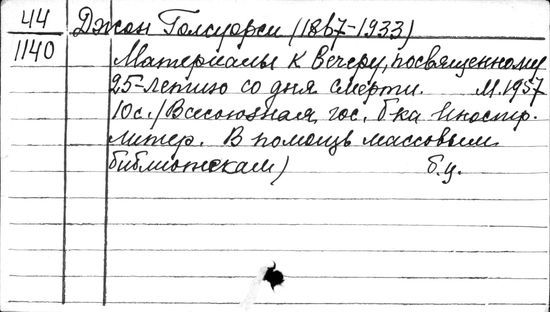 44
1140
Джон Голсуорси (1867-1933)
Материалы к вечеру, посвященному
25-летию со дня смерти. М. 1957
10с. /Всесоюзная гос. б-ка иностр.
литер. В помощь массовым
библиотекам) б.ц.